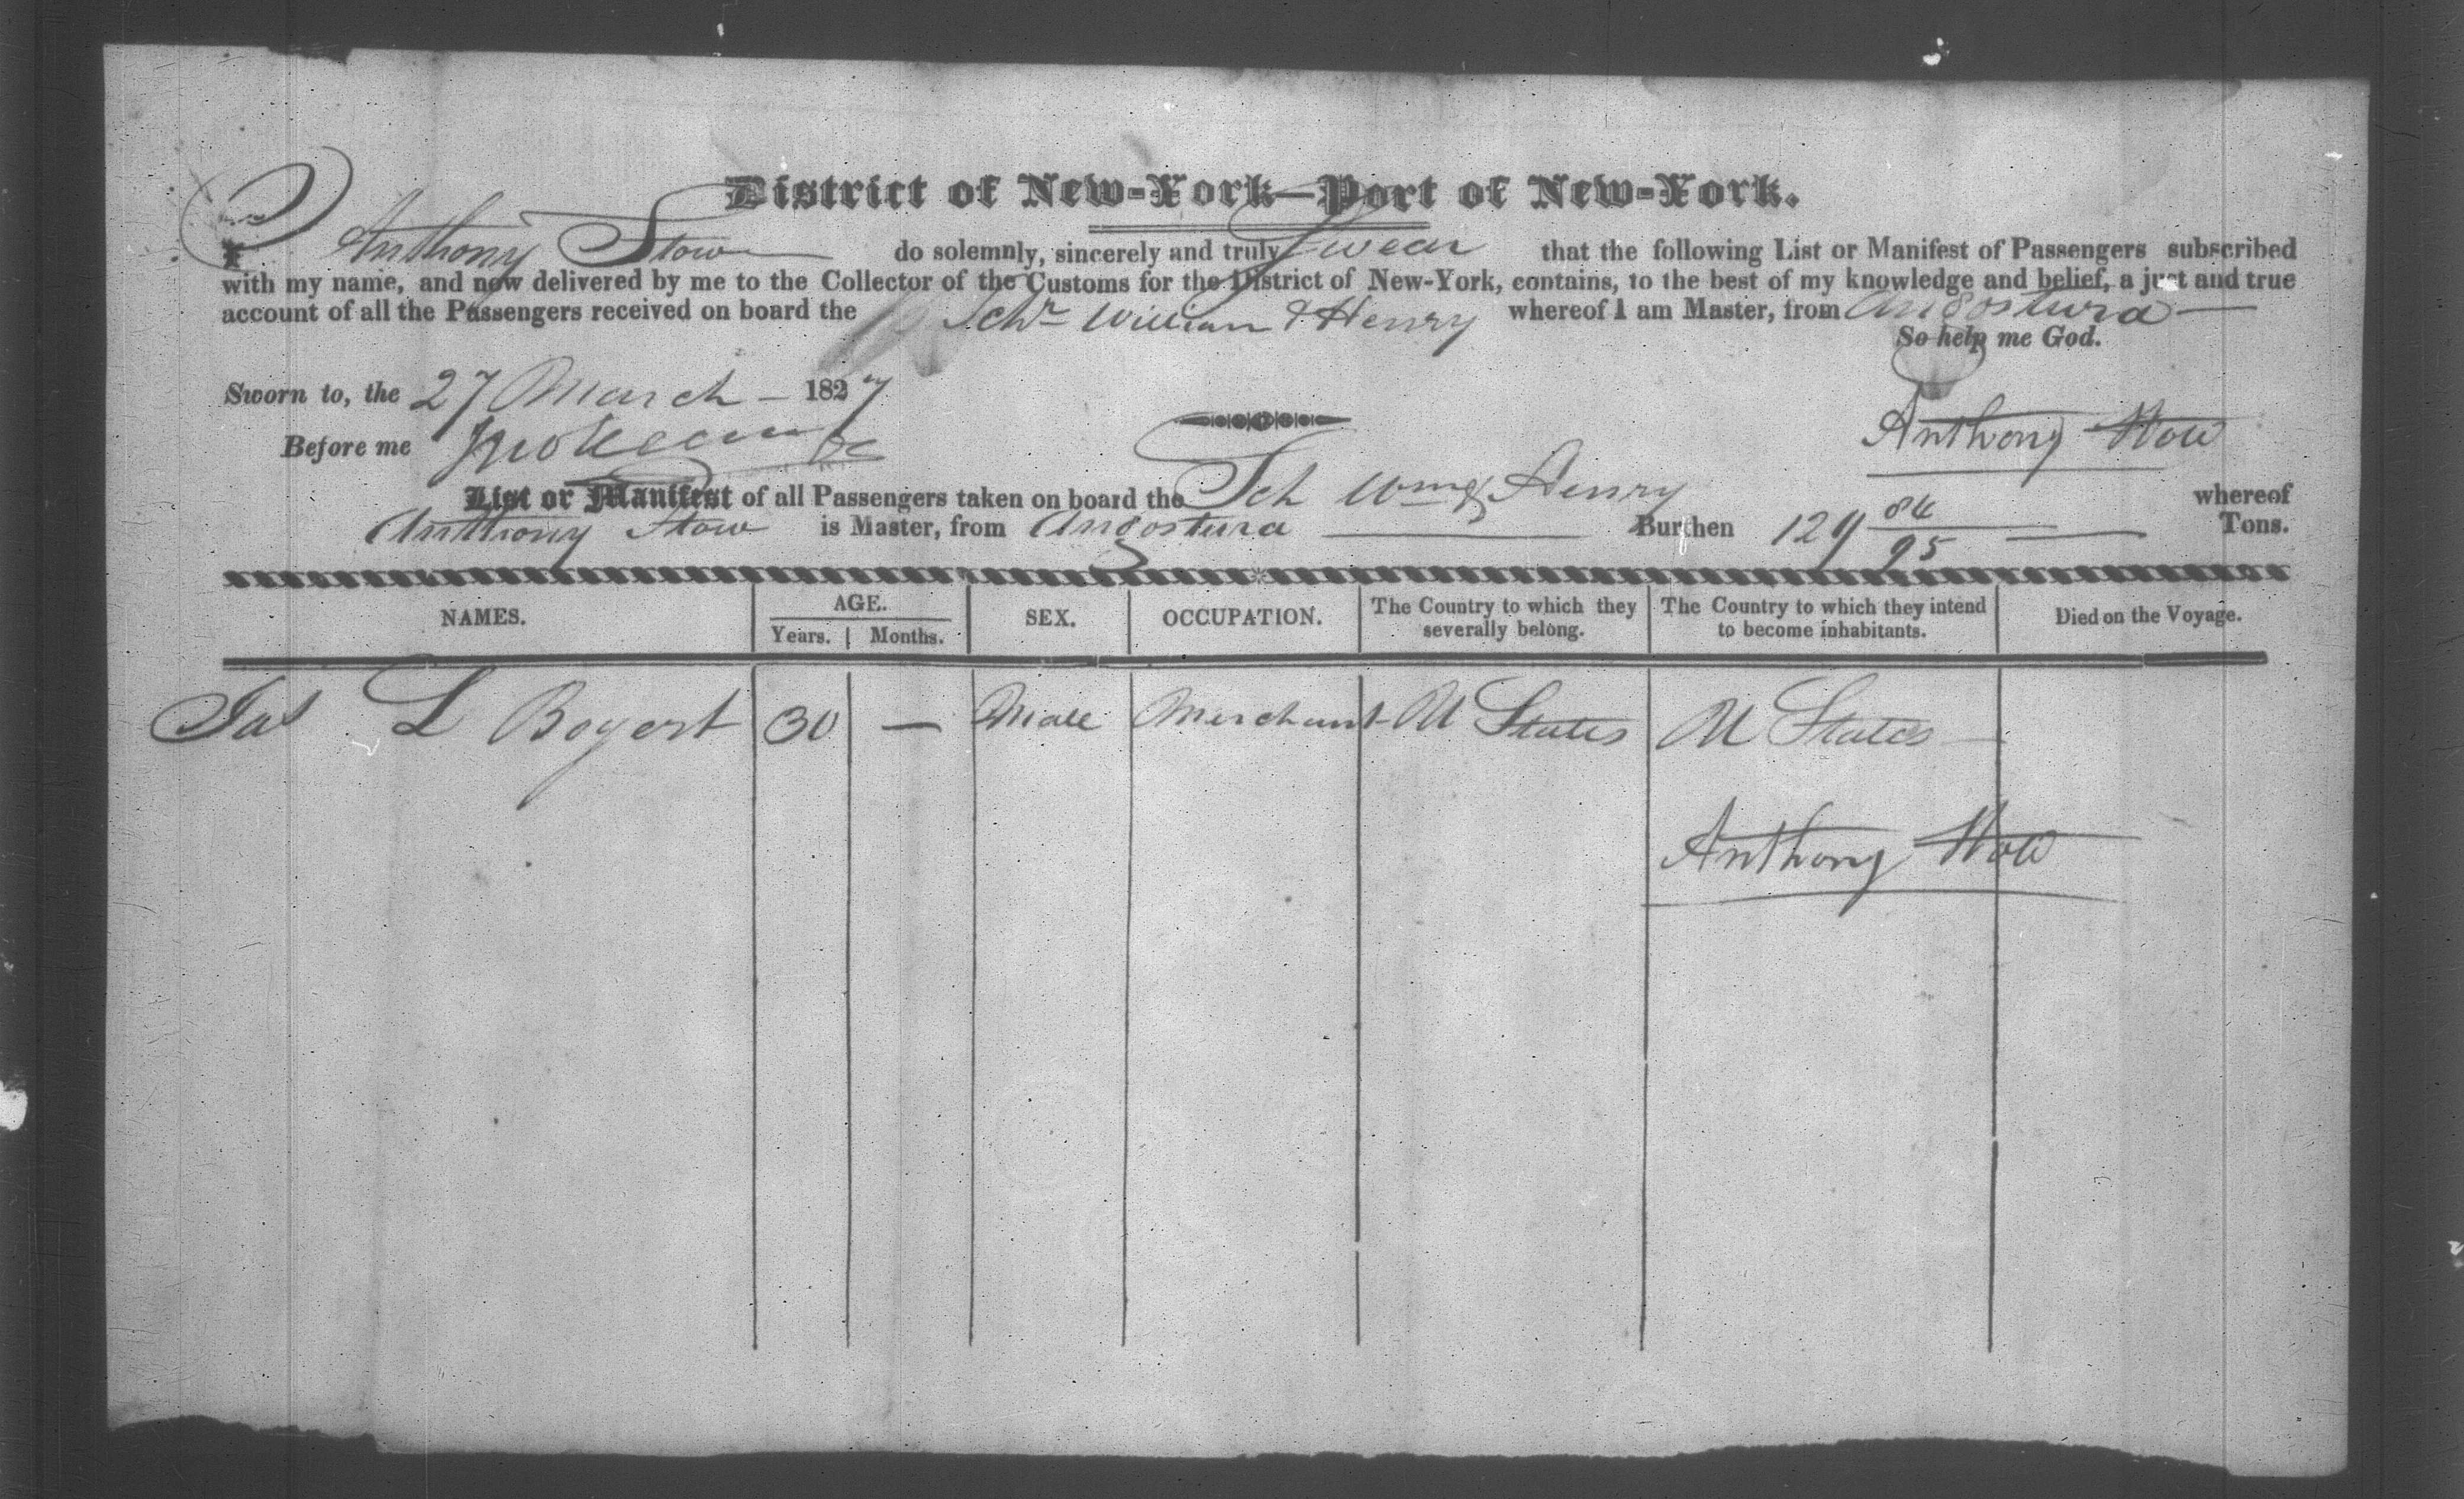 District of New-York—Port of New-York.
I Anthony Stow do solemnly, sincerely and truly Swear that the following List or Manifest of Passengers subscribed
with my name, and now delivered by me to the Collector of the Customs for the District of New-York, contains, to the best of my knowledge and belief, a just and true
account of all the Passengers received on board the Schr William & Henry whereof I am Master, from Angostura
So help me God.
Sworn to, the 27 March - 1827
Anthony Stow
Before me
List or Manifest of all Passengers taken on board the Sch Wm & Henry whereof
Anthony Stow is Master, from Angostura Burthen 129 84/95 Tons.
NAMES. AGE. SEX. OCCUPATION. The Country to which they severally belong. The Country to which they intend to become inhabitants. Died on the Voyage.
Years. Months.
Jas L Bogert 30 — Male Merchant U States U States —
Anthony Stow